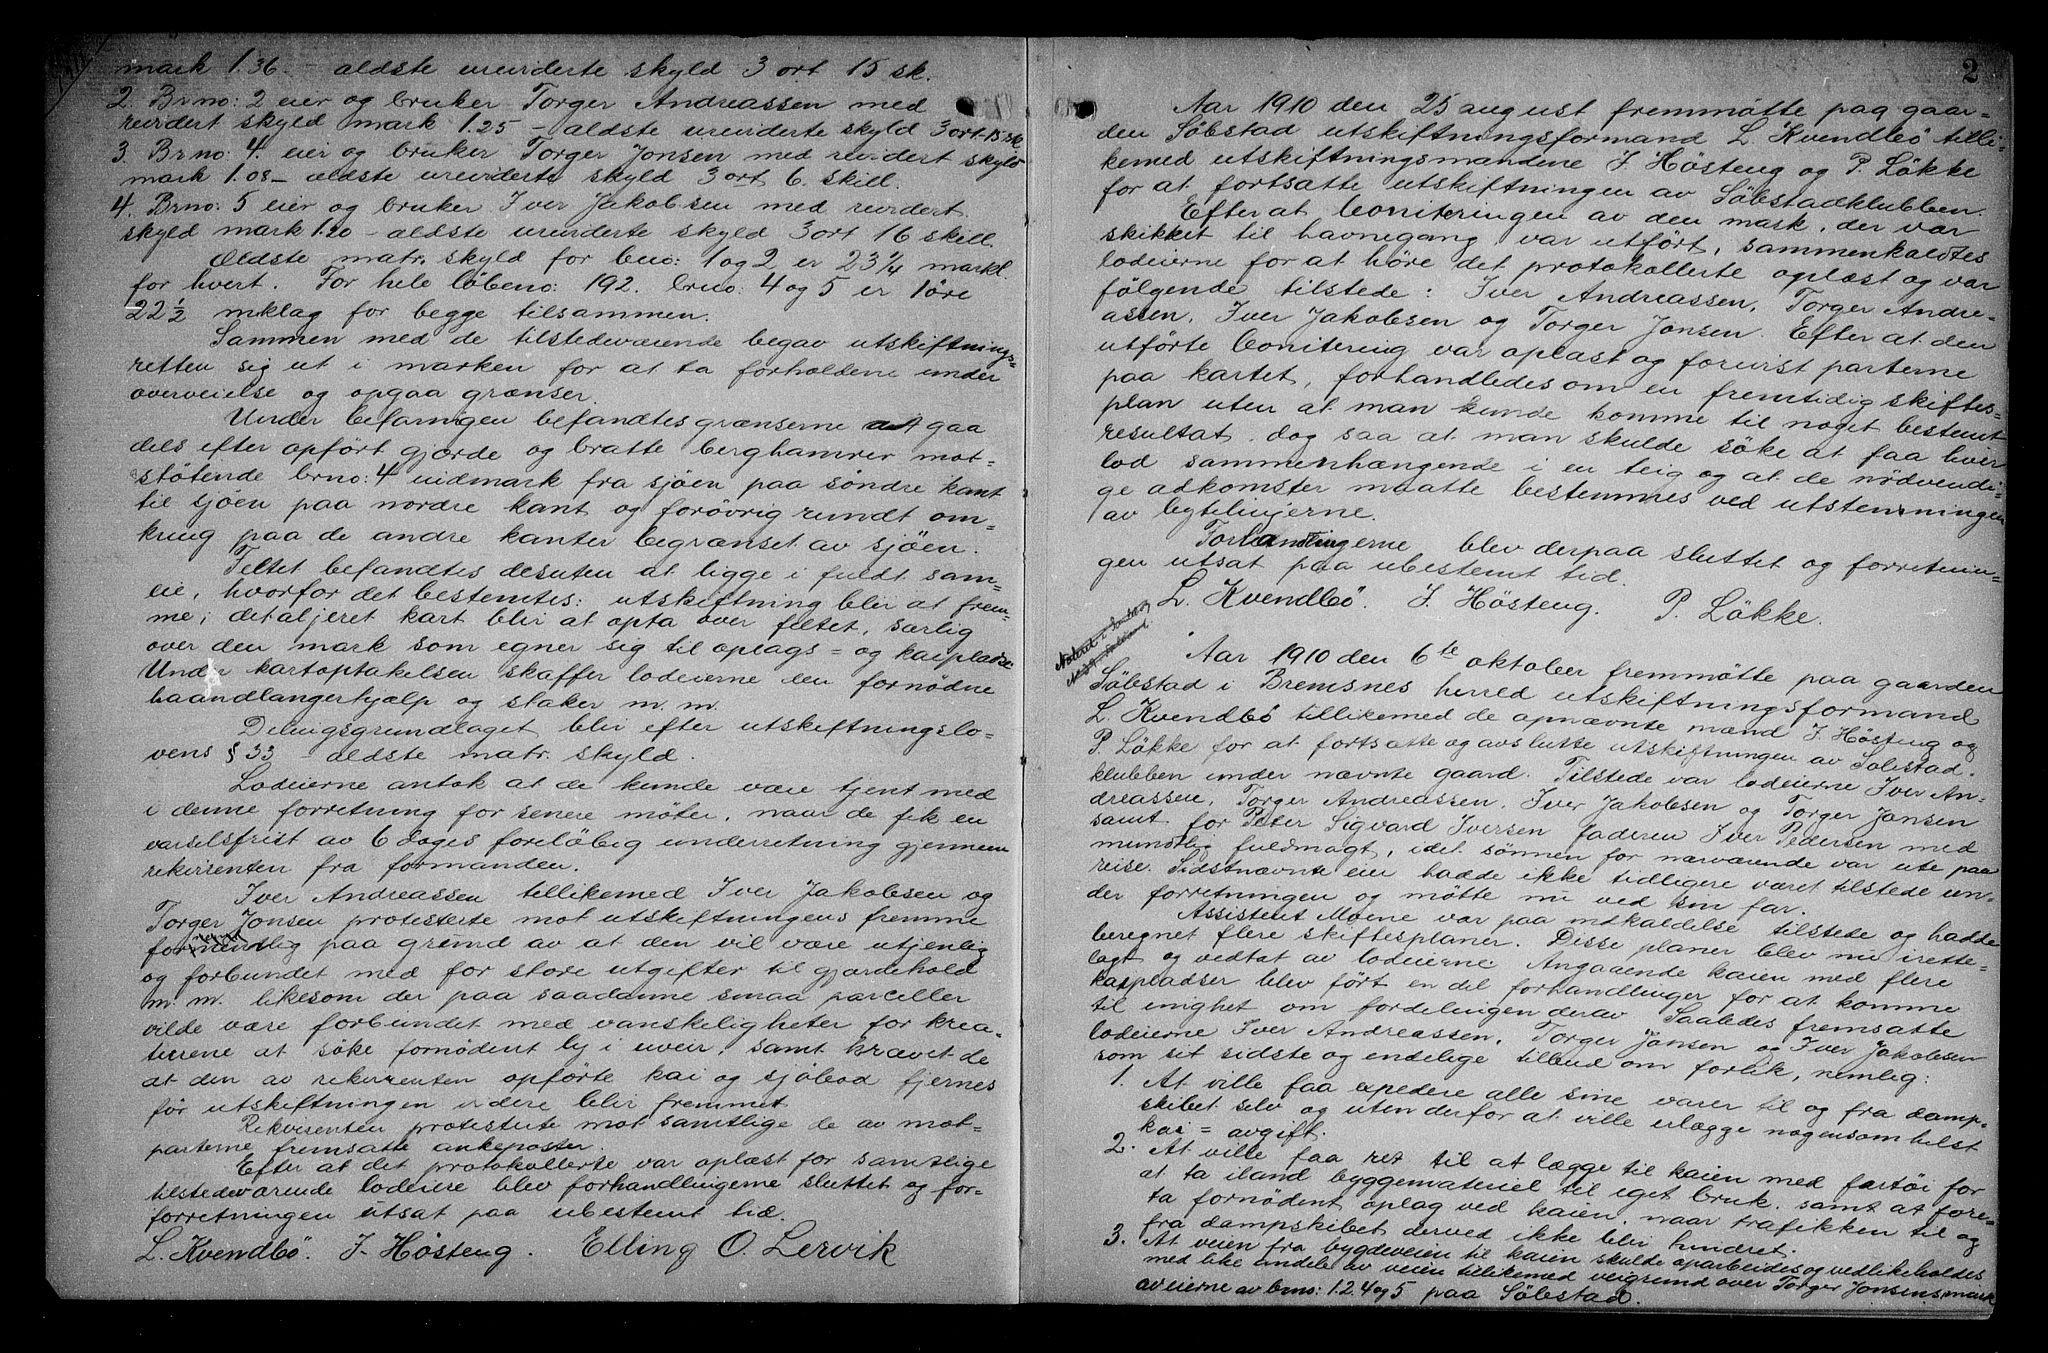 mark 1.36. – ældste ureviderte skyld 3 ort 15 sk.
2. Brno: 2 eier og bruker Torger Andreassen med
revidert skyld mark 1.25 – ældste ureviderte skyld 3 ort 15 sk
3. Brno: 4. eier og bruker Torger Jonsen med revidert skyld
mark 1.08 – ældste ureviderte skyld 3 ort 6. skill.
4. Brno: 5 eier og bruker Iver Jakobsen med revidert
skyld mark 1.20 – ældste ureviderte skyld 3 ort 16 skill.
Ældste matr. skyld for bno: 1 og 2 er 23 1/4 markl.
for hvert. For hele løbeno: 192. brno: 4 og 5 er 1 øre
22 1/2 mklag for begge tilsammen.
Sammen med de tilstedeværende begav utskiftnings=
retten sig ut i marken for at ta forholdene under
overveielse og opgaa grænser.
Under befaringen befandtes grænserne at gaa
dels efter opført gjærde og bratte berghamrer mot=
støtende brno: 4 utmark fra sjøen paa søndre kant
til sjøen paa nordre kant og forøvrig rundt om=
kring paa de andre kanter begrænset av sjøen.
Feltet befandtes desuten at ligge i fuldt sam=
eie, hvorfor det bestemtes: utskiftning blir at frem=
me; detaljeret kart blir at opta over feltet, særlig
over den mark som egner sig til oplags= og kaipladse
Under kartoptakelsen skaffer lodeierne den fornødne
haandlangerhjælp og staker m. m.
Delingsgrundlaget blir efter utskiftningslo=
vens § 33 – ældste matr. skyld.
Lodeierne antok at de kunde være tjent med
i denne forretning for senere møter, naar de fik en
varselsfrist av 6 dages foreløbig underretning gjennem
rekvirenten fra formanden.
Iver Andreassen tillikemed Iver Jakobsen og
Torger Jonsen protesterte mot utskiftningens fremme
paa grund av at den vil være utjenlig
og forbundet med for store utgifter til gjærdehold
m. m. likesom der paa saadanne smaa parceller
vilde være forbundet med vanskeligheter for krea=
turene at søke fornødent ly i uveir, samt krævet de
at den av rekvirenten opførte kai og sjøbod fjernes
før utskiftningen videre blir fremmet.
Rekvirenten protesterte mot samtlige de av mot=
parterne fremsatte ankeposter.
Efter at det protokollerte var oplæst for samtlige
tilstedeværende lodeiere blev forhandlingerne sluttet og for=
forretningen utsat paa ubestemt tid.
L. Kvendbø. J. Høsteng. Elling O. Lervik
2
Aar 1910 den 25 august fremmøtte paa gaar=
den Søbstad utskiftningsformand L. Kvendbø tilli=
kemed utskiftningsmændene J. Høsteng og P. Løkke
for at fortsætte utskiftningen av Søbstadklubben.
Efterat boniteringen av den mark, der var
skikket til havnegang var utført, sammenkaldtes
lodeierne for at høre det protokollerte oplæst og var
følgende tilstede: Iver Andreassen, Torger Andre=
assen, Iver Jakobsen og Torger Jonsen. Efter at den
utførte bonitering var oplæst og forevist parterne
paa kartet, forhandledes om en fremtidig skiftes=
plan uten at man kunde komme til noget bestemt
resultat, dog saa at man skulde søke at faa hver
lod sammenhængende i en teig og at de nødvendi=
ge adkomster maatte bestemmes ved utstemningen
av bytelinjerne.
Forhandlingerne blev derpaa sluttet og forretnin=
gen utsat paa ubestemt tid.
L. Kvendbø. J. Høsteng. P. Løkke.
Aar 1910 den 6te oktober fremmøtte paa gaarden
Søbstad i Bremsnes herred utskiftningsformand
L. Kvendbø tillikemed de opnævnte mænd J. Høsteng og
P. Løkke for at fortsætte og avslutte utskiftningen av Søbstad=
klubben under nævnte gaard. Tilstede var lodeierne Iver An=
dreassen, Torger Andreassen, Iver Jakobsen og Torger Jonsen
samt for Peter Sigvard Iversen faderen Iver Pedersen med
mundtlig fuldmagt, idet sønnen for nærværende var ute paa
reise. Sidstnævnte eier hadde ikke tidligere været tilstede un=
der forretningen og møtte nu ved sin far.
Assistent Moene var paa indkaldelse tilstede og hadde
beregnet flere skiftesplaner. Disse planer blev nu irette=
lagt og vedtat av lodeierne. Angaaende kaien med flere
kaipladser blev ført en del forhandlinger for at komme
til enighet om fordelingen derav. Saaledes fremsatte
lodeierne Iver Andreassen, Torger Jonsen og Iver Jakobsen
som sit sidste og endelige tilbud om forlik, nemlig:
1. At ville faa expedere alle sine varer til og fra damp=
skibet selv og uten derfor at ville erlægge nogensomhelst
kai= avgift.
2. At ville faa ret til at lægge til kaien med fartøi for
at ta iland byggemateriel til eget bruk, samt at fore=
ta fornødent oplag ved kaien, naar trafikken til og
fra dampskibet derved ikke blir hindret.
3. At veien fra bygdeveien til kaien skulde oparbeides og vedlikeholdes
med like andele av veien tillikemed veigrund over Torger Jonsens mark
av eierne av brno: 1. 2. 4 og 5 paa Søbstad.